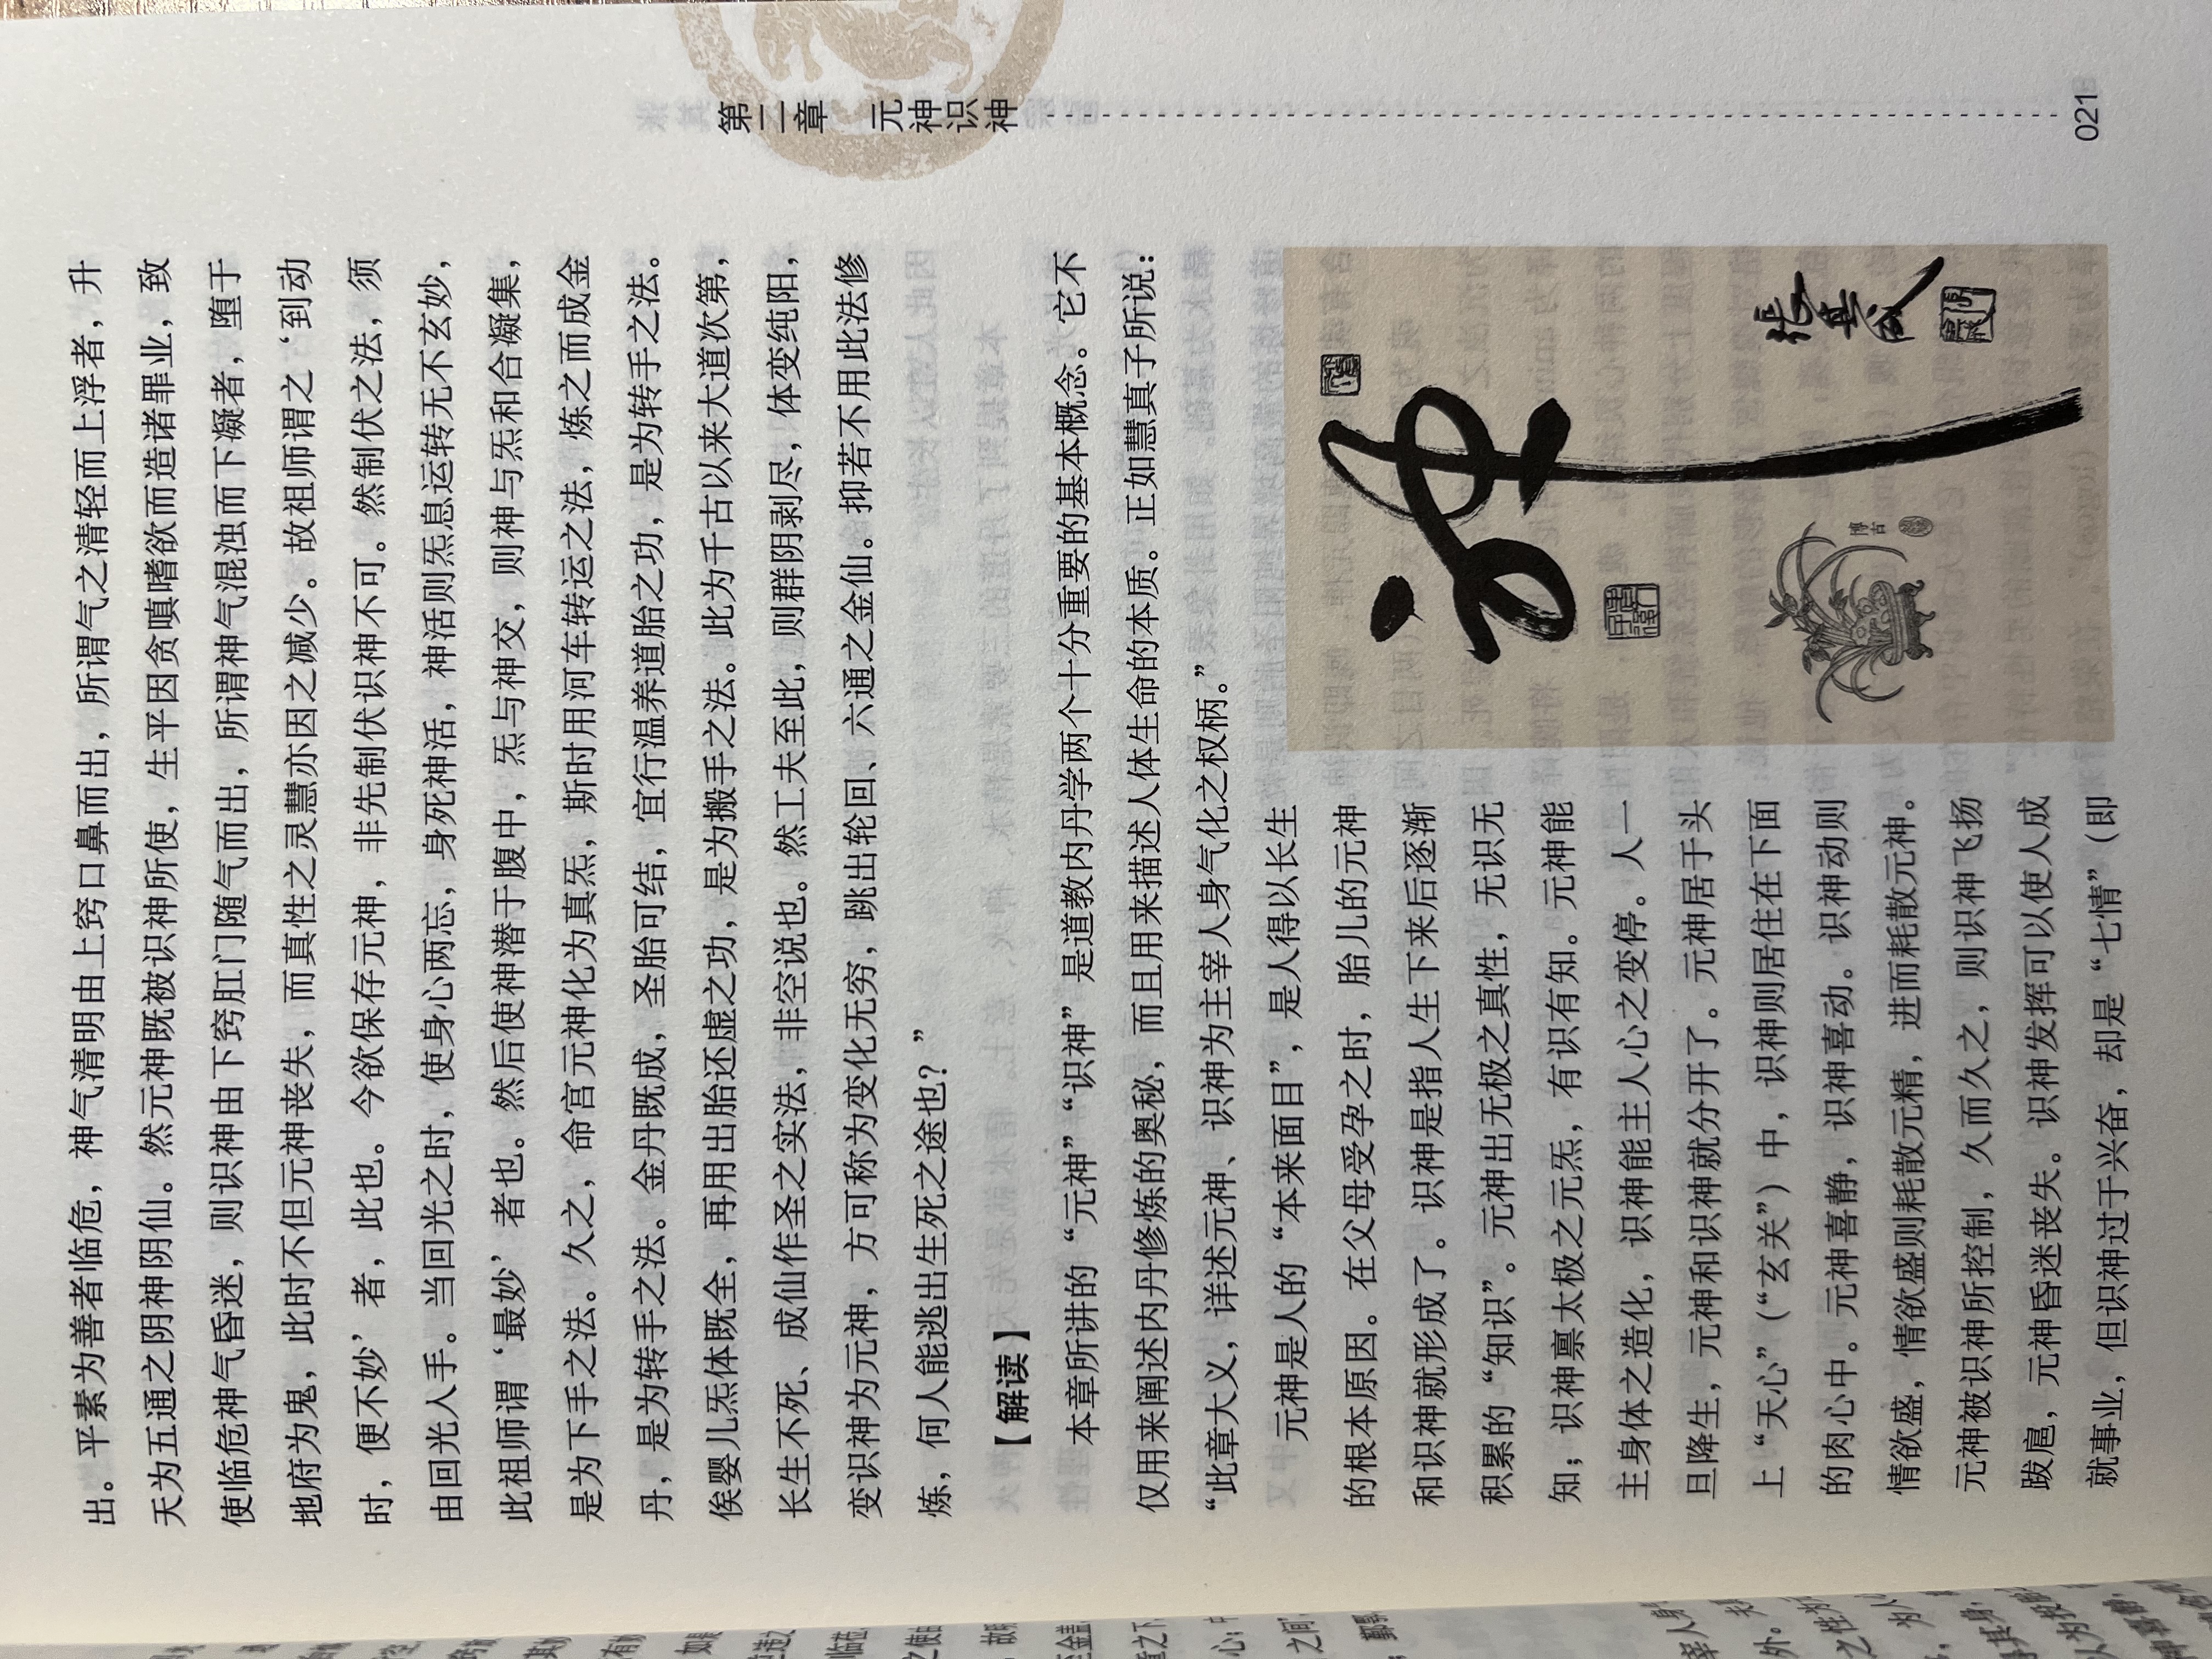 第二章　元神识神
出。平素为善者临危，神气清明由上窍口鼻而出，所谓气之清轻而上浮者，升
天为五通之阴神阴仙。然元神既被识神所使，生平因贪嗔嗜欲而造诸罪业，致
使临危神气昏迷，则识神由下窍肛门随气而出，所谓神气混浊而下凝者，堕于
地府为鬼，此时不但元神丧失，而真性之灵慧亦因之减少。故祖师谓之‘到动
时，便不妙’者，此也。今欲保存元神，非先制伏识神不可。然制伏之法，须
由回光入手。当回光之时，使身心两忘，身死神活，神活则炁息运转无不玄妙，
此祖师谓‘最妙’者也。然后使神潜于腹中，炁与神交，则神与炁和合凝集，
是为下手之法。久之，命宫元神化为真炁，斯时用河车转运之法，炼之而成金
丹，是为转手之法。金丹既成，圣胎可结，宜行温养道胎之功，是为转手之法。
俟婴儿炁体既全，再用出胎还虚之功，是为撒手之法。此为千古以来大道次第，
长生不死、成仙作圣之实法，非空说也。然工夫至此，则群阴剥尽，体变纯阳，
变识神为元神，方可称为变化无穷，跳出轮回、六通之金仙。抑若不用此法修
炼，何人能逃出生死之途也？”
【解读】
本章所讲的“元神”“识神”是道教内丹学两个十分重要的基本概念。它不
仅用来阐述内丹修炼的奥秘，而且用来描述人体生命的本质。正如慧真子所说：
“此章大义，详述元神、识神为主宰人身气化之权柄。”
元神是人的“本来面目”，是人得以长生
的根本原因。在父母受孕之时，胎儿的元神
和识神就形成了。识神是指人生下来后逐渐
积累的“知识”。元神出无极之真性，无识无
知；识神禀太极之元炁，有识有知。元神能
主身体之造化，识神能主人心之变停。人一
旦降生，元神和识神就分开了。元神居于头
上“天心”（“玄关”）中，识神则居住在下面
的肉心中。元神喜静，识神喜动。识神动则
情欲盛，情欲盛则耗散元精，进而耗散元神。
元神被识神所控制，久而久之，则识神飞扬
跋扈，元神昏迷丧失。识神发挥可以使人成
就事业，但识神过于兴奋，却是“七情”（即
神
張其成
博古
021